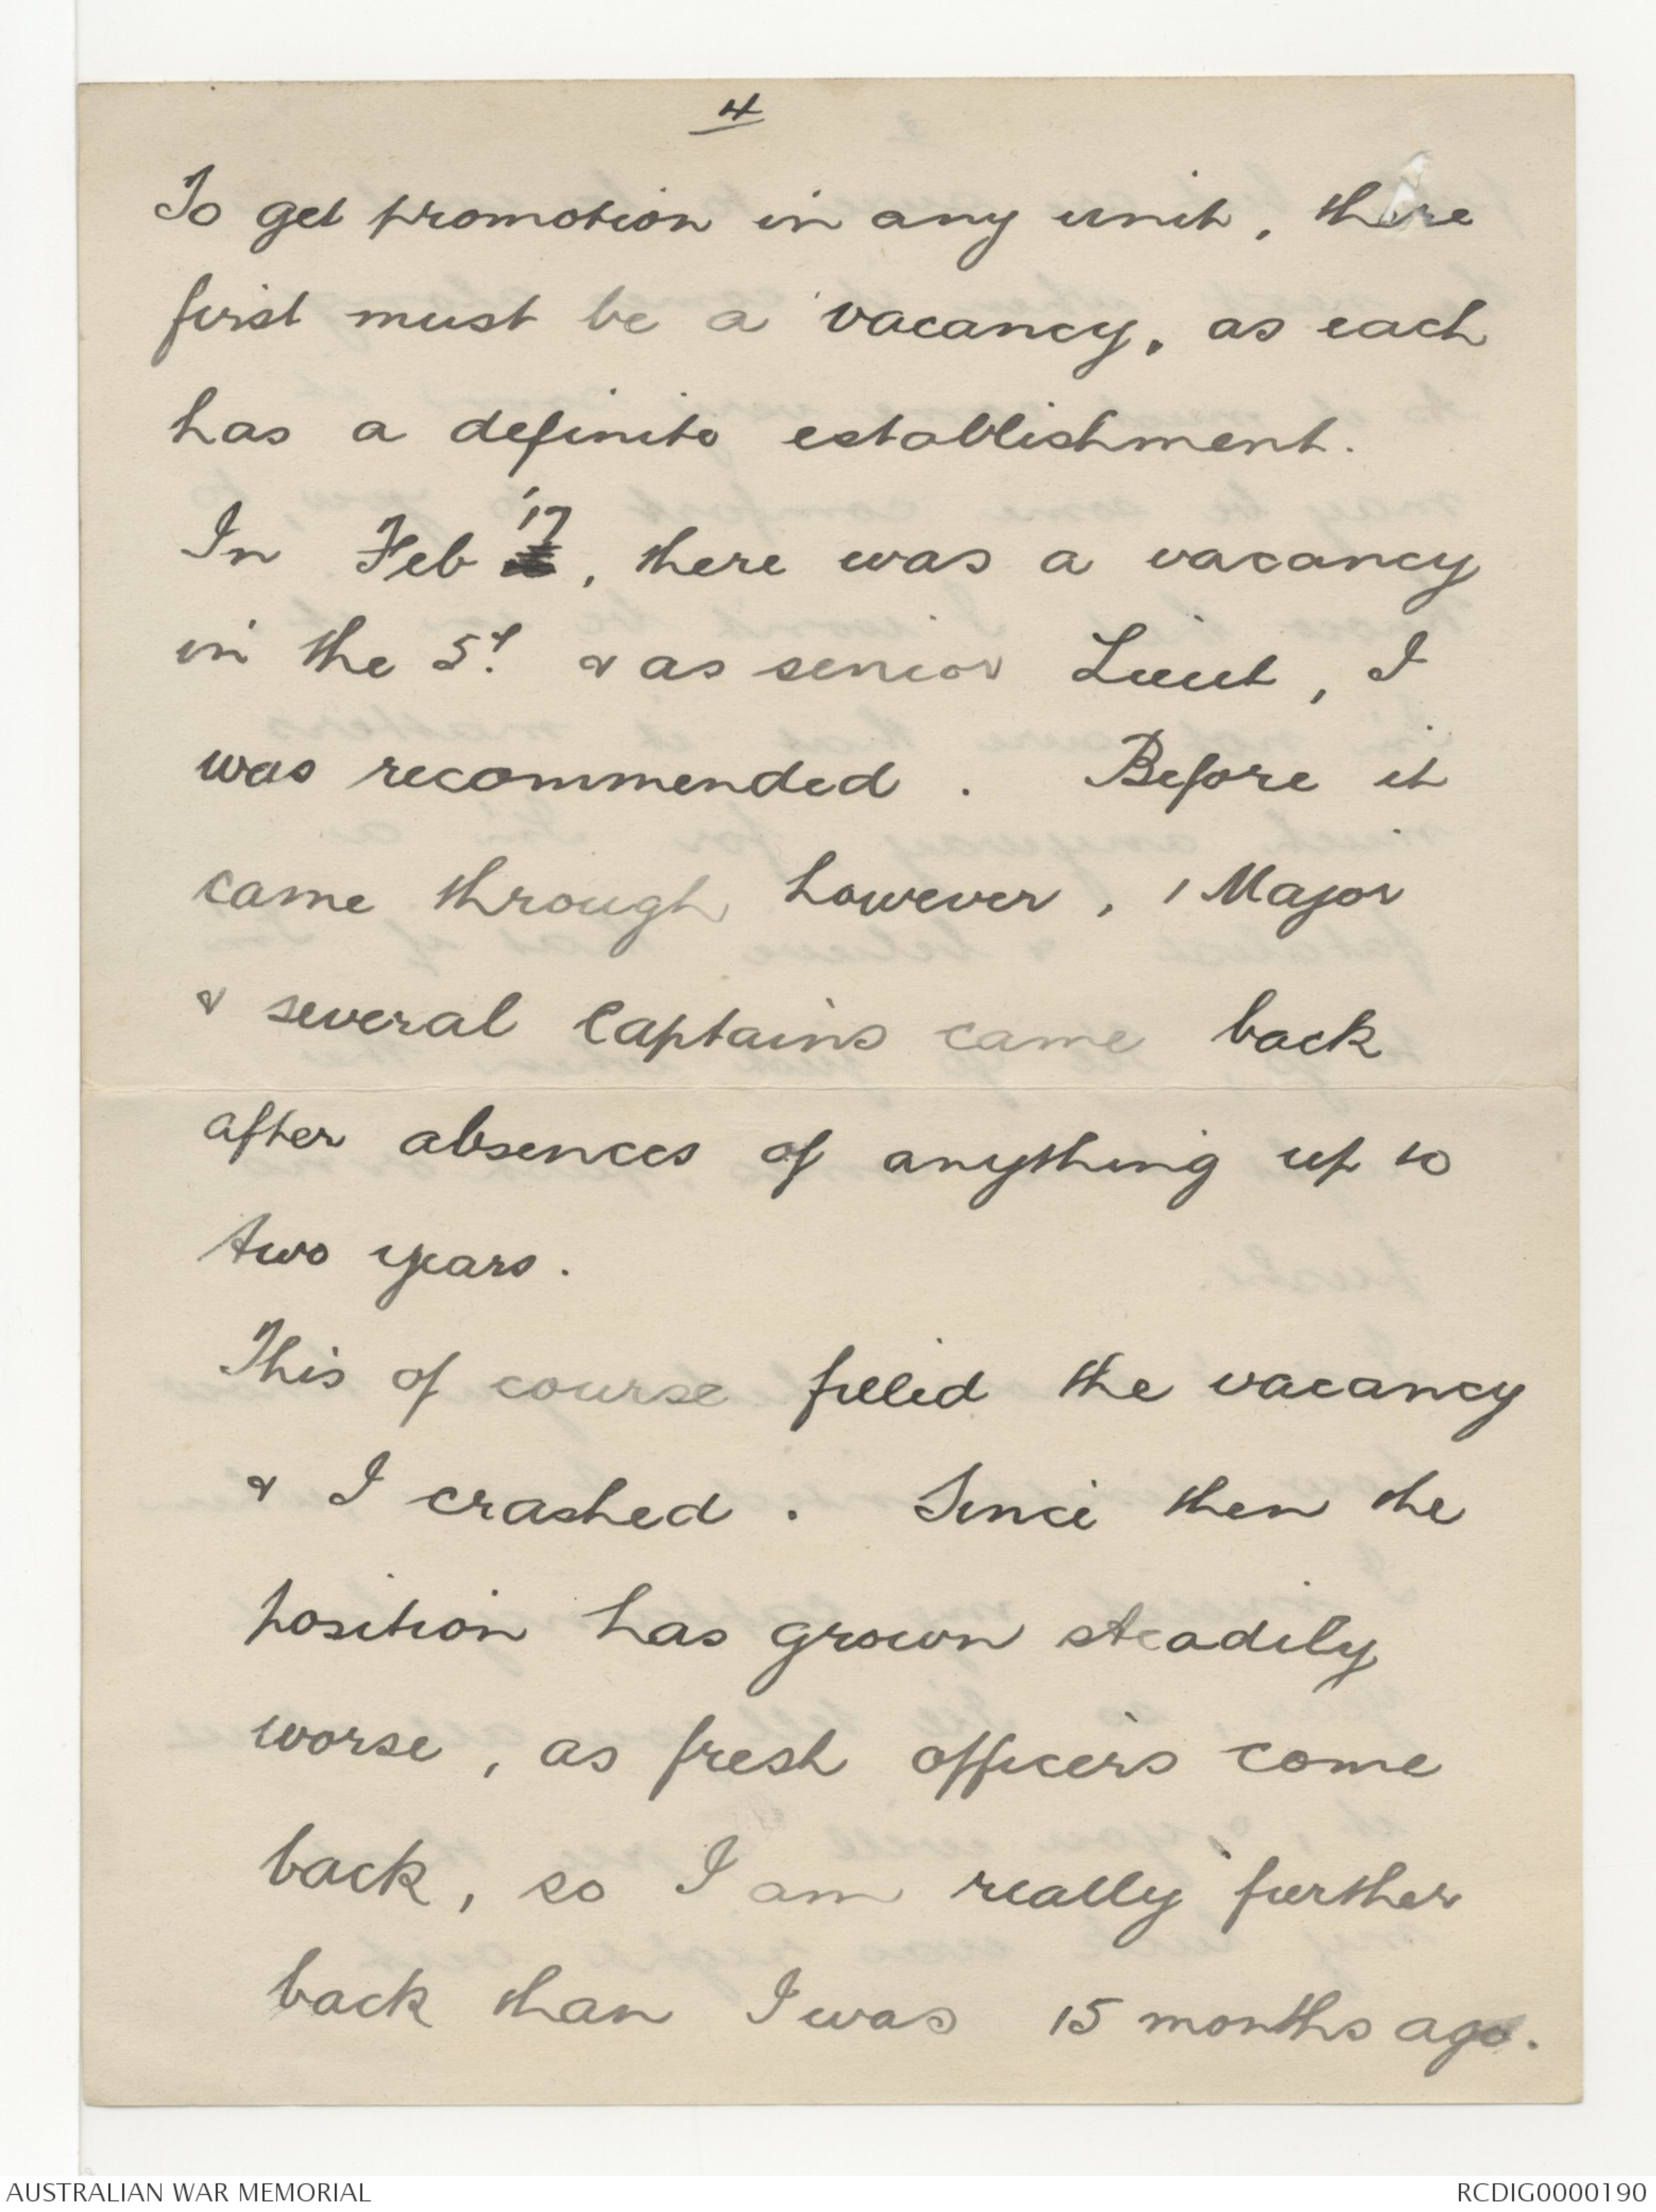 4
To get promotion in any unit, there
first must be a vacancy, as each
has a definite establishment.
In Feb '17, there was a vacancy
in the 5th & as senior Lieut, I
was recommended. Before it
came through however, 1 Major
& several Captains came back
after absences of anything up to
two years.
This of course filled the vacancy
& I crashed. Since then the
position has grown steadily
worse, as fresh officers come
back, so I am really further
back than I was 15 months ago.
AUSTRALIAN WAR MEMORIAL
RCDIG0000190